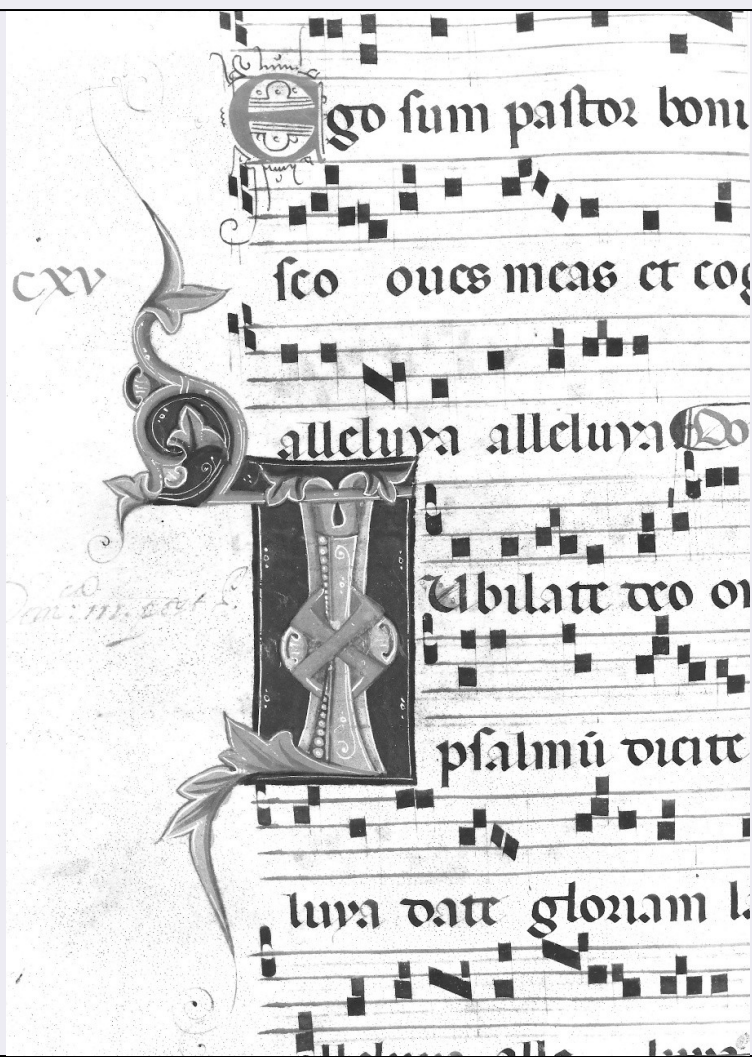 Ego sum pastor bonu
CXV
sco oues meas et cog
alleluya alleluya Do
IUbilate deo om
psalmū dicite
luya date gloriam l
alleluya alle luya